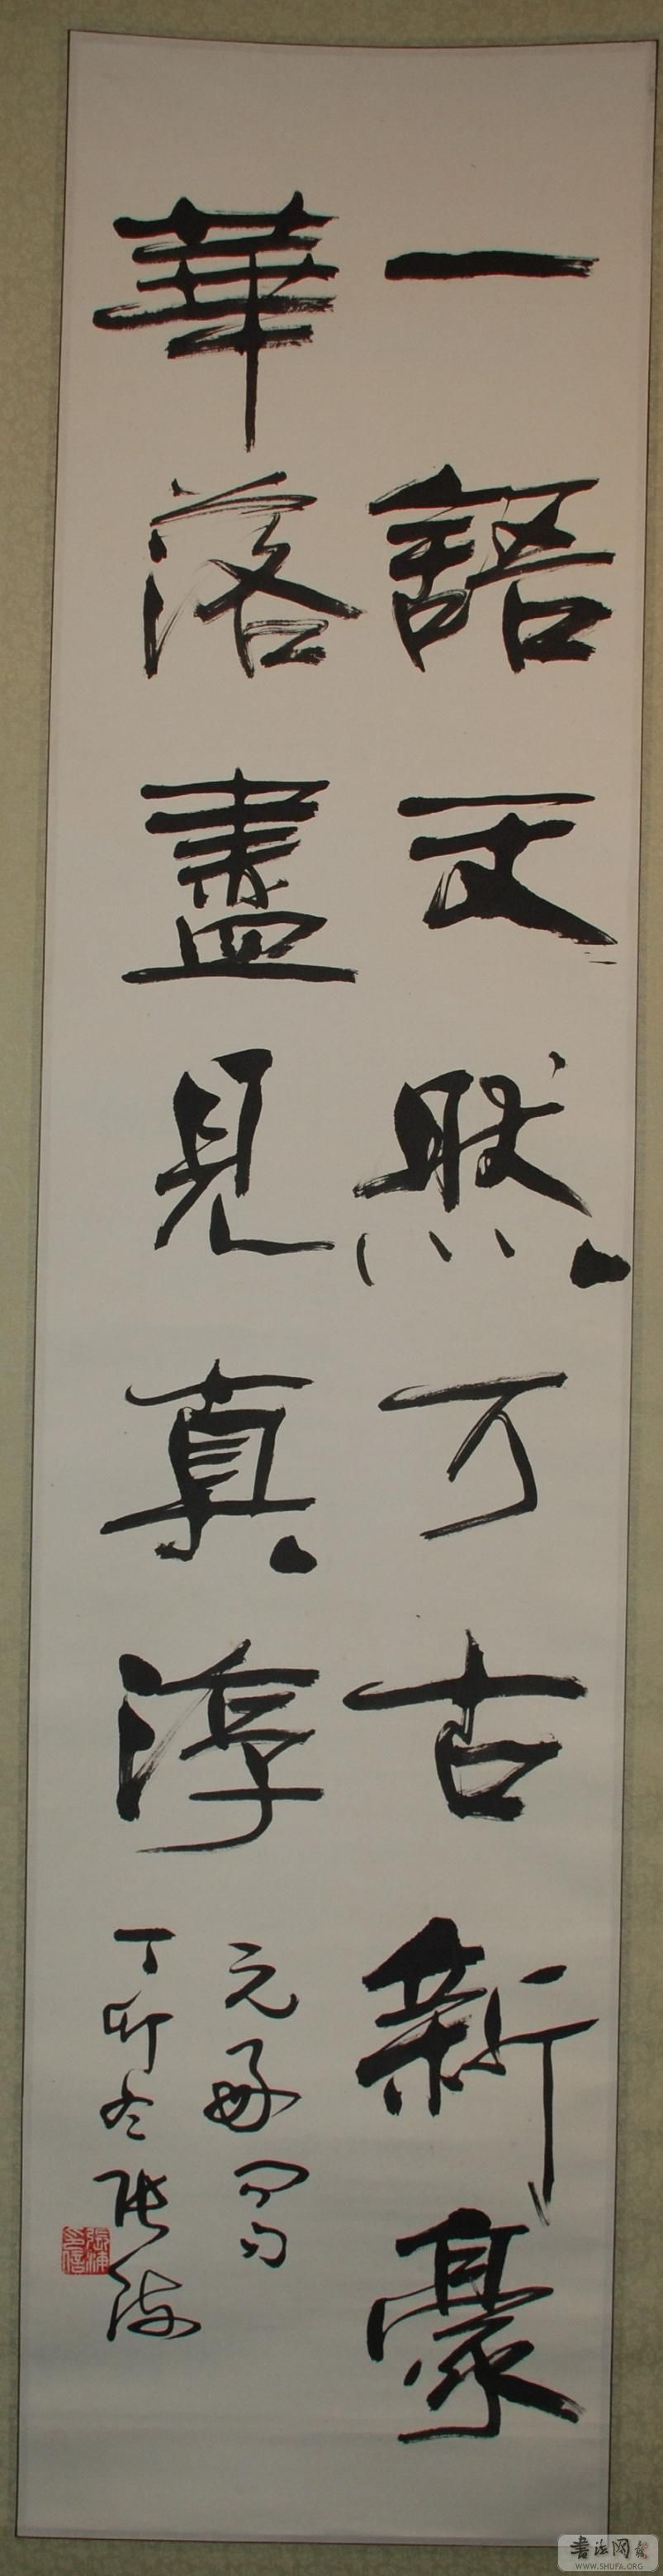 一語天然万古新豪
華落盡見真淳
元好问句
丁卯冬张海
書法网
WWW.SHUFA.ORG